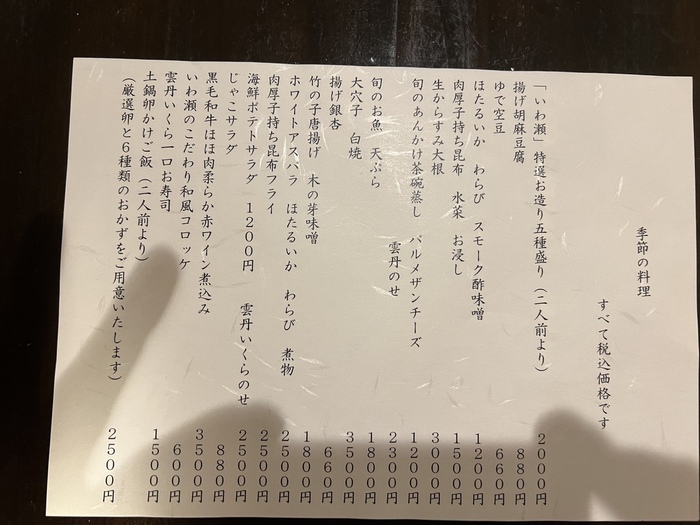 季節の料理
すべて税込価格です
「いわ瀬」特選お造り五種盛り(二人前より) 2000円
揚げ胡麻豆腐 880円
ゆで空豆 660円
ほたるいか わらび スモーク酢味噌 1200円
肉厚子持ち昆布 水菜 お浸し 1500円
生からすみ大根 3000円
旬のあんかけ茶碗蒸し パルメザンチーズ 1200円
雲丹のせ 2300円
旬のお魚 天ぷら 1800円
大穴子 白焼 3500円
揚げ銀杏 660円
竹の子唐揚げ 木の芽味噌 1800円
ホワイトアスパラ ほたるいか わらび 煮物 2500円
肉厚子持ち昆布フライ 2500円
海鮮ポテトサラダ 1200円 雲丹いくらのせ 2500円
じゃこサラダ 880円
黒毛和牛ほほ肉柔らか赤ワイン煮込み 3500円
いわ瀬のこだわり和風コロッケ 600円
雲丹いくら一口お寿司 1500円
土鍋卵かけご飯(二人前より)
(厳選卵と6種類のおかずをご用意いたします) 2500円